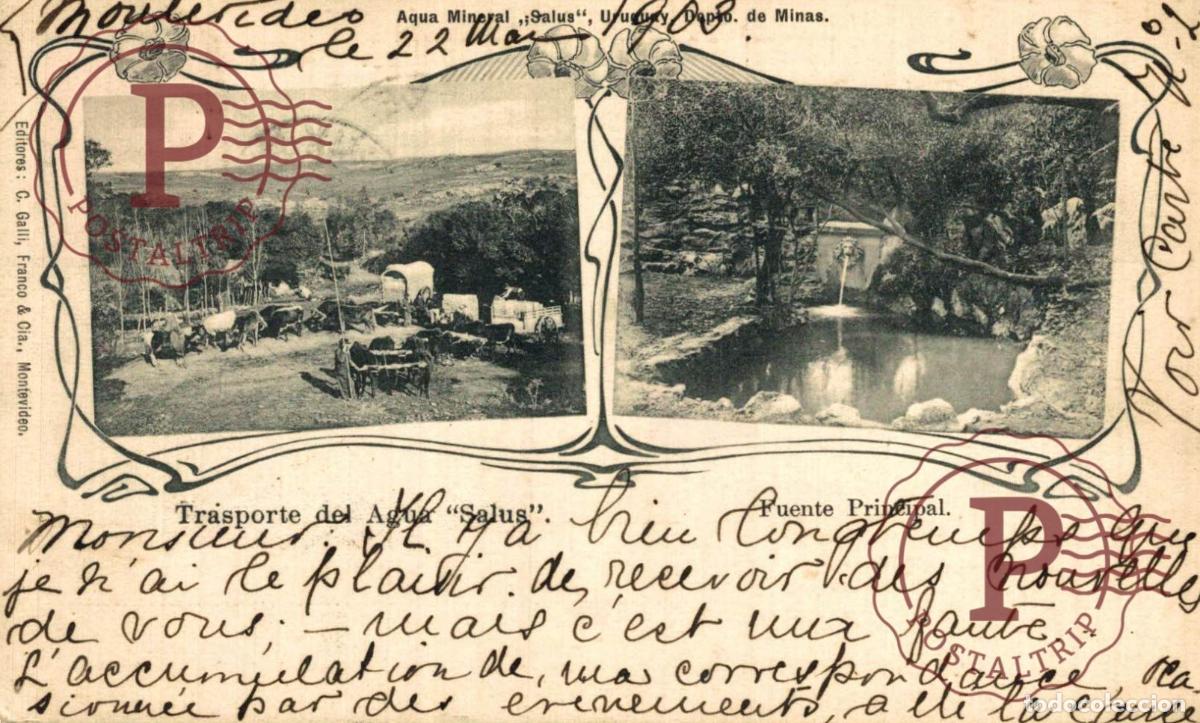 Aqua Mineral „Salus“, Uruguay, Depto. de Minas.
Montevideo
le 22 Mai 1903.
Editores: C. Galli, Franco & Cia., Montevideo.
P
POSTALTRIP
Trasporte del Agua "Salus".
Fuente Principal.
Monsieur. Il y a bien longtemps que
je n'ai le plaisir de recevoir des nouvelles
de vous; – mais c'est ma faute
L'accumulation de ma correspondance, oca
sionnée par des evenements, a été la cause
P
POSTALTRIP
todocoleccion